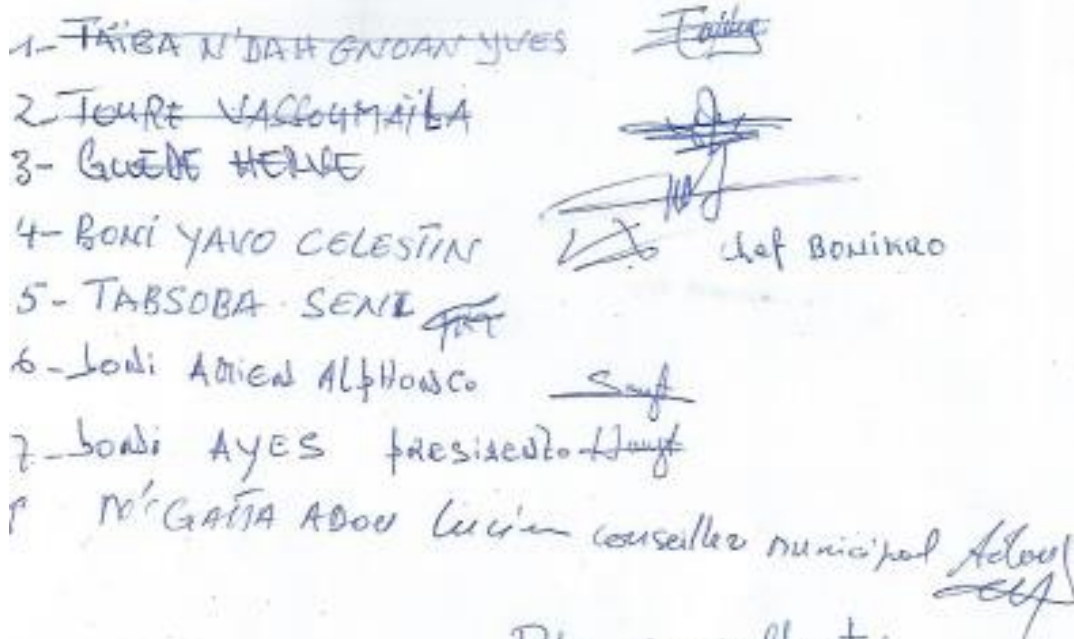 1- TAÏBA N'DAH GNOAN YVES
2- TOURE VASSOUMAÏLA
3- GUEDE HERVE
4- BONI YAVO CELESTIN chef BONIKRO
5- TABSOBA SENI
6- boni ALPHONSO
7- boni AYES
N'GATTA ADOU Lucien conseiller municipal Adou